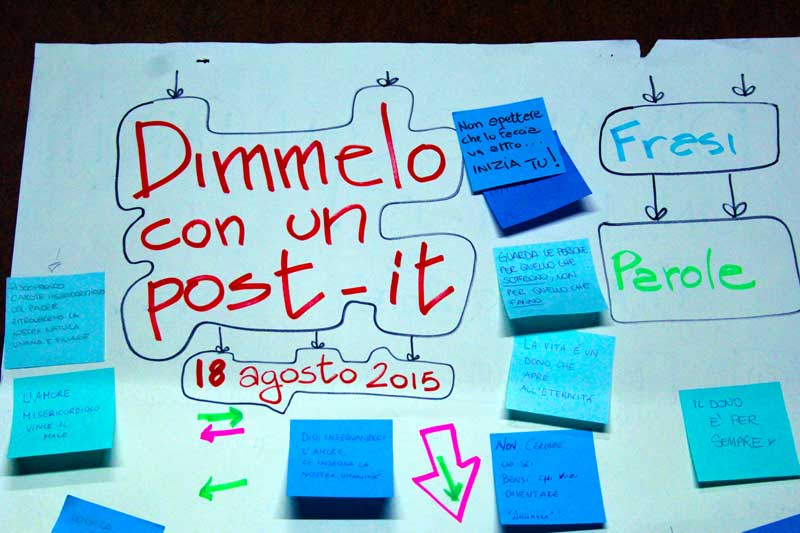 Dimmelo
con un
post-it
18 agosto 2015
Non aspettare
che lo faccia
un altro...
INIZIA TU!
Frasi
Parole
GUARDA LE PERSONE
PER QUELLO CHE
SOFFRONO, NON
PER QUELLO CHE
FANNO
LA VITA È UN
DONO CHE
APRE
ALL'ETERNITÀ
L'AMORE
MISERICORDIOSO
VINCE IL
MALE
DIO INSEGNANDOCI
L'AMORE
CI INSEGNA LA
NOSTRA UMANITÀ
NON CERCARE
CHI SEI
BENSÌ CHI VUOI
DIVENTARE
IL DONO
È PER
SEMPRE